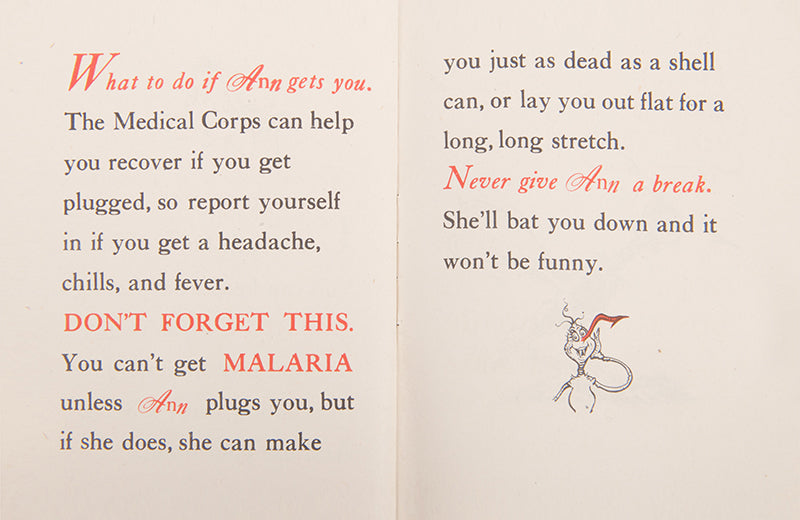 What to do if Ann gets you.
The Medical Corps can help
you recover if you get
plugged, so report yourself
in if you get a headache,
chills, and fever.
DON'T FORGET THIS.
You can't get MALARIA
unless Ann plugs you, but
if she does, she can make
you just as dead as a shell
can, or lay you out flat for a
long, long stretch.
Never give Ann a break.
She'll bat you down and it
won't be funny.